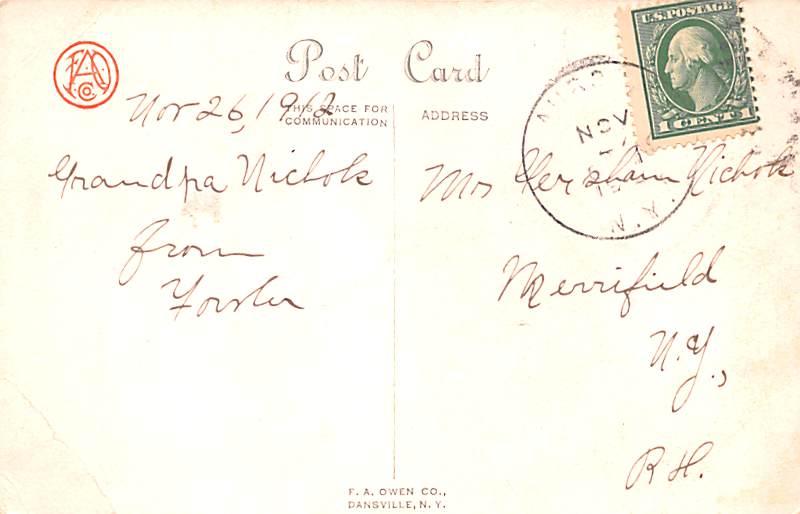 Post Card
FAO Co.
Nov 26, 1912
THIS SPACE FOR
COMMUNICATION
Grandpa Nichols
from
Fowler
ADDRESS
U.S. POSTAGE
1 CENT 1
NOV
N.Y.
Mrs Hersham Nichols
Merrifield
N.Y.,
R.H.
F. A. OWEN CO.,
DANSVILLE, N. Y.